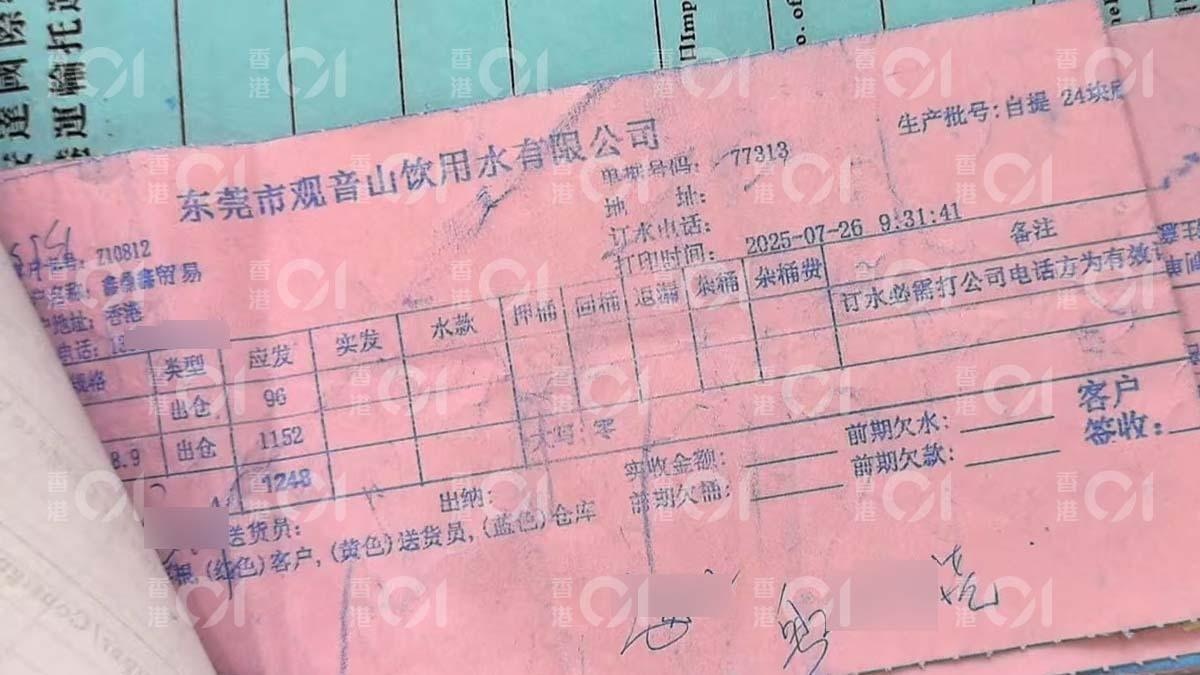 達國際
運輸托運
□Imp
o. of
hel
东莞市观音山饮用水有限公司
生产批号:自提 24块
单据号码: 77313
地 址:
订水电话:
打印时间: 2025-07-26 9:31:41
卡编号: 710812
户名称: 鑫桑鑫贸易
户地址: 香港
电话: 13
规格 类型 应发 实发 水款 押桶 回桶 退漏 杂桶 杂桶费 备注
出仓 96 订水必需打公司电话方为有效
8.9 出仓 1152
1248 大写:零
实收金额: 前期欠水: 客户
前期欠桶: 前期欠款: 签收:
送货员: 出纳:
根, (红色)客户, (黄色)送货员, (蓝色)仓库
香港01